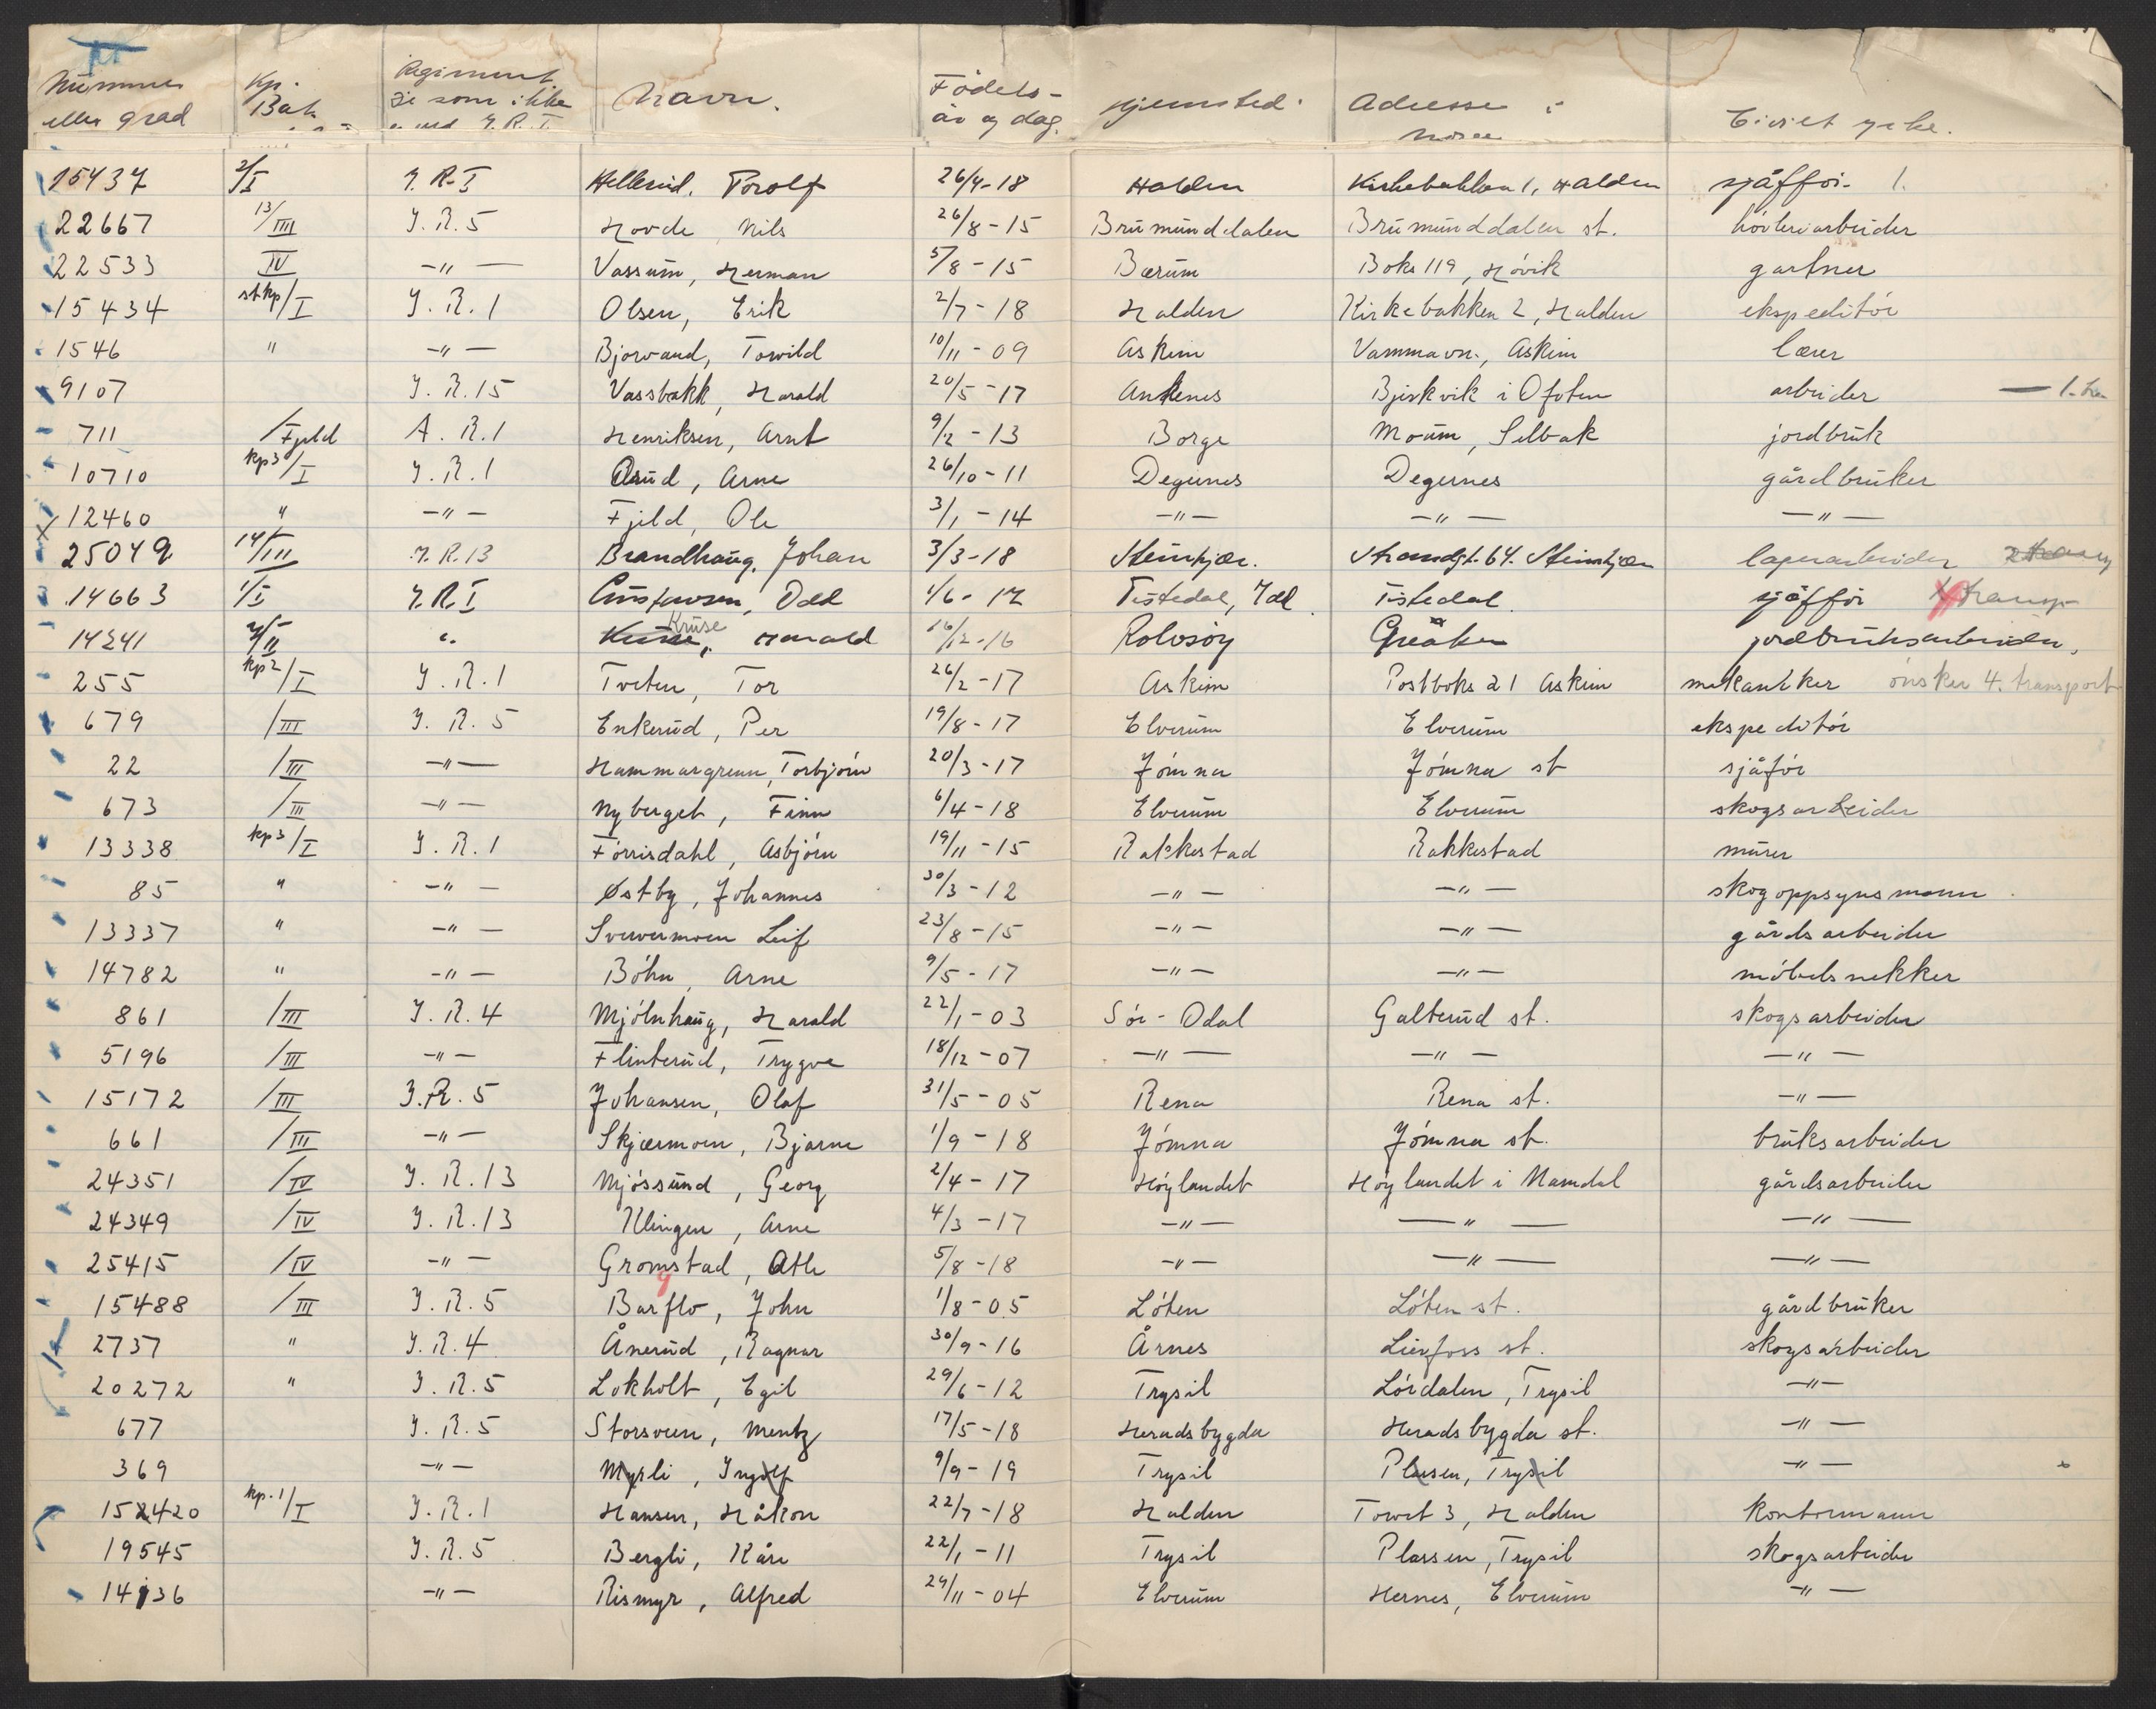 Nummer eller grad | Kp. Bat. | Regiment de som ikke er ved I.R.I. | Navn. | Fødels- år og dag. | Hjemsted. | Adresse i Norge | Civilt yrke.
15437 2/I I.R.I Hellerud, Torolf 26/4-18 Halden Kirkebakken 1, Halden sjåffør. 1.
22667 13/III I.R.5 Hovde, Nils 26/8-15 Brumunddalen Brumunddalen st. høvleriarbeider
22533 IV -"- Vassum, Herman 5/8-15 Bærum Boks 119, Høvik gartner
15434 stkp/I I.R.1 Olsen, Erik 2/7-18 Halden Kirkebakken 2, Halden ekspeditør
1546 " -"- Bjorvand, Torvild 10/11-09 Askim Vammavn., Askim lærer
9107 I.R.15 Vassbakk, Harald 20/5-17 Ankenes Bjerkvik i Ofoten arbeider — 1.
711 /Fjeld A.R.1 Henriksen, Arnt 9/2-13 Borge Moum, Selbak jordbruk
10710 kp3/I I.R.1 Åsrud, Arne 26/10-11 Degernes Degernes gårdbruker
12460 " -"- Fjeld, Ole 3/1-14 -"- -"- -"-
25049 14/III I.R.13 Brandhaug, Johan 3/3-18 Steinkjær. Strandgt. 64. Steinkjær lagerarbeider
14663 1/I I.R.I Gustavsen, Odd 1/6-17 Tistedal, Idd Tistedal. sjåffør transp
14241 /II " Kruse, Harald 16/12-16 Rolvsøy Greåker jordbruksarbeider,
255 kp2/I I.R.1 Tveten, Tor 26/2-17 Askim Postboks 21 Askim mekaniker ønsker 4. transport
679 /III I.R.5 Enkerud, Per 19/8-17 Elverum Elverum ekspeditør
22 /III -"- Hammargrenn, Torbjørn 20/3-17 Jømna Jømna st sjåfør
673 /III -"- Nyberget, Finn 6/4-18 Elverum Elverum skogsarbeider
13338 kp3/I I.R.1 Førrisdahl, Asbjørn 19/11-15 Rakkestad Rakkestad murer
85 " -"- Østby, Johannes 30/3-12 -"- -"- skogoppsynsmann.
13337 " -"- Sververmoen Leif 23/8-15 -"- -"- gårdsarbeider
14782 " -"- Bøhn, Arne 9/5-17 -"- -"- møbelsnekker
861 /III I.R.4 Mjølnhaug, Harald 22/1-03 Sør-Odal Galterud st. skogsarbeider
5196 /III -"- Flinterud, Trygve 18/12-07 -"- -"- -"-
15172 /III I.R.5 Johansen, Olaf 31/5-05 Rena Rena st. -"-
661 /III -"- Skjærmoen, Bjarne 1/9-18 Jømna Jømna st. bruksarbeider
24351 /IV I.R.13 Mjøssund, Georg 2/4-17 Høylandet Høylandet i Namdal gårdsarbeider
24349 /IV I.R.13 Klingen, Arne 4/3-17 -"- -"- -"-
25415 /IV -"- Gromstad, Atle 5/8-18 -"- -"- -"-
15488 /III I.R.5 Barflo, John 1/8-05 Løten Løten st. gårdbruker
2737 " I.R.4 Ånerud, Ragnar 30/9-16 Årnes Lierfoss st. skogsarbeider
20272 " I.R.5 Lokholt, Egil 29/6-12 Trysil Lørdalen, Trysil -"-
677 I.R.5 Storsveen, Mentz 17/5-18 Heradsbygda Heradsbygda st. -"-
369 -"- Myrli, Ingolf 9/9-19 Trysil Plassen, Trysil -"-
152420 kp.1/I I.R.1 Hansen, Håkon 22/7-18 Halden Torvet 3, Halden Kontormann
19545 I.R.5 Bergli, Kåre 22/1-11 Trysil Plassen, Trysil skogsarbeider
14136 -"- Rismyr, Alfred 24/11-04 Elverum Hernes, Elverum -"-